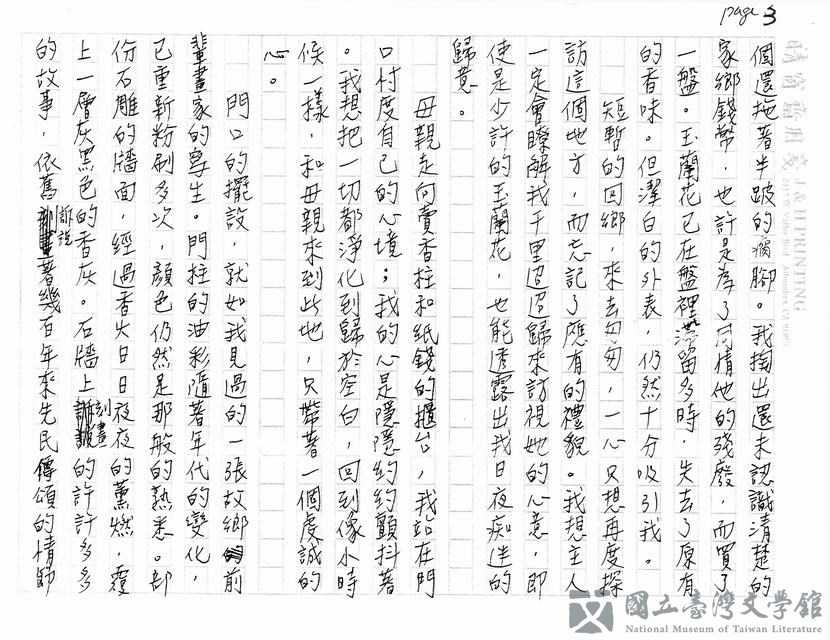 page 3
個還拖著半跛的病腳。我掏出還未認識清楚的
家鄉錢幣，也許是為了同情他的殘廢，而買了
一盤。玉蘭花已在盤裡滯留多時，失去了原有
的香味。但潔白的外表，仍然十分吸引我。
短暫的回鄉，來去匆匆，一心只想再度探
訪這個地方，而忘記了應有的禮貌。我想主人
一定會瞭解我千里迢迢歸來訪視她的心意，即
使是少許的玉蘭花，也能透露出我日夜痴迷的
歸意。
母親走向賣香柱和紙錢的櫃台，我站在門
口忖度自己的心境；我的心是隱隱約約顫抖著
。我想把一切都淨化到歸於空白，回到像小時
候一樣，和母親來到此地，只帶著一個虔誠的
心。
門口的擺設，就如我見過的一張故鄉前
輩畫家的寫生。門柱的油彩隨著年代的變化，
已重新粉刷多次，顏色仍然是那般的熟悉。部
份石雕的牆面，經過香火日日夜夜的薰燃，覆
上一層灰黑色的香灰。石牆上刻畫的許許多多
的故事，依舊訴說著幾百年來先民傳頌的情節
晴窗稿用箋 J & H PRINTING
國立臺灣文學館
National Museum of Taiwan Literature